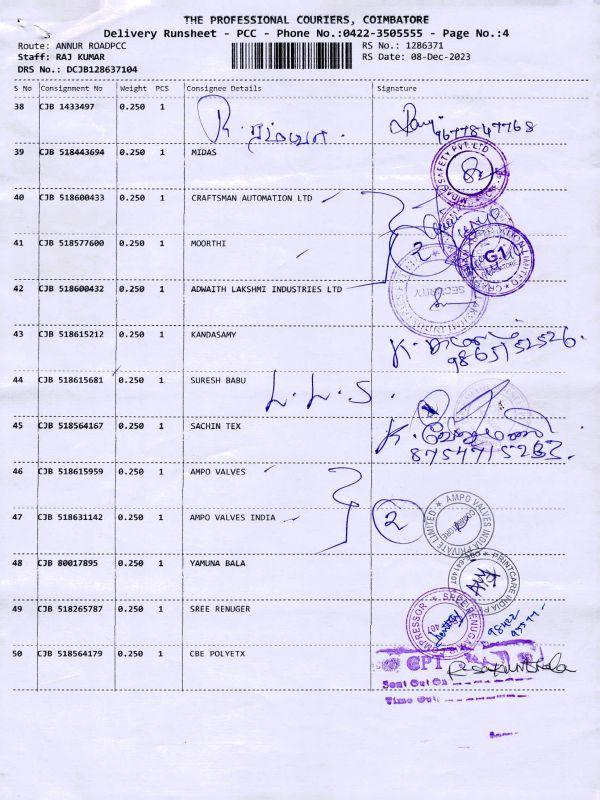 THE PROFESSIONAL COURIERS, COIMBATORE
Delivery Runsheet - PCC - Phone No.:0422-3505555 - Page No.:4
Route: ANNUR ROADPCC
RS No.: 1286371
Staff: RAJ KUMAR
RS Date: 08-Dec-2023
DRS No.: DCJB128637104
S No Consignment No Weight PCS Consignee Details Signature
38 CJB 1433497 0.250 1
9677847768
39 CJB 518443694 0.250 1 MIDAS
40 CJB 518600433 0.250 1 CRAFTSMAN AUTOMATION LTD
41 CJB 518577600 0.250 1 MOORTHI
2
G1
42 CJB 518600432 0.250 1 ADWAITH LAKSHMI INDUSTRIES LTD
SECURITY
43 CJB 518615212 0.250 1 KANDASAMY
9865152526.
44 CJB 518615681 0.250 1 SURESH BABU
L. L. S.
45 CJB 518564167 0.250 1 SACHIN TEX
46 CJB 518615959 0.250 1 AMPO VALVES
47 CJB 518631142 0.250 1 AMPO VALVES INDIA
2
AMPO VALVES INDIA PRIVATE LIMITED
COIMBATORE
48 CJB 80017895 0.250 1 YAMUNA BALA
PRINTCARE INDIA
49 CJB 518265787 0.250 1 SREE RENUGER
50 CJB 518564179 0.250 1 CBE POLYETX
CPT
Sent Out On
Time Out